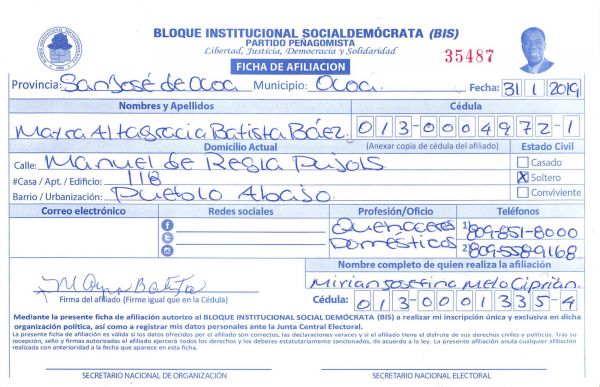 BLOQUE INSTITUCIONAL SOCIALDEMÓCRATA (BIS)
PARTIDO PEÑAGOMISTA
Libertad, Justicia, Democracia y Solidaridad
35487
FICHA DE AFILIACION
Provincia: San José de Ocoa Municipio: Ocoa. Fecha: 31 1 2019
Nombres y Apellidos Cédula
Mayra Altagracia Batista Báez. 013-0004972-1
Domicilio Actual (Anexar copia de cédula del afiliado) Estado Civil
Calle: Manuel de Regla Pujols Casado
#Casa / Apt. / Edificio: 118 X Soltero
Barrio / Urbanización: Pueblo Abajo Conviviente
Correo electrónico Redes sociales Profesión/Oficio Teléfonos
Quehaceres 1) 809-851-8000
Domésticos 2) 809-558-9168
Nombre completo de quien realiza la afiliación
Mayra Batista Mirian Josefina Melo Ciprian.
Firma del afiliado (Firme igual que en la Cédula) Cédula: 013-0001335-4
Mediante la presente ficha de afiliación autorizo al BLOQUE INSTITUCIONAL SOCIAL DEMÓCRATA (BIS) a realizar mi inscripción única y exclusiva en dicha
organización política, así como a registrar mis datos personales ante la Junta Central Electoral.
La presente ficha de afiliación es válida si los datos ofrecidos por el afiliado son correctos, las declaraciones veraces y si el afiliado tiene el disfrute de sus derechos civiles y políticos. Tras su
recepción, sello y firmas autorizadas el afiliado ejercerá todos los derechos y los deberes estatutariamente sancionados, de acuerdo a la ley. La presente afiliación anula cualquier afiliación
realizada con anterioridad a la fecha que aparece en esta ficha.
SECRETARIO NACIONAL DE ORGANIZACIÓN SECRETARIO NACIONAL ELECTORAL